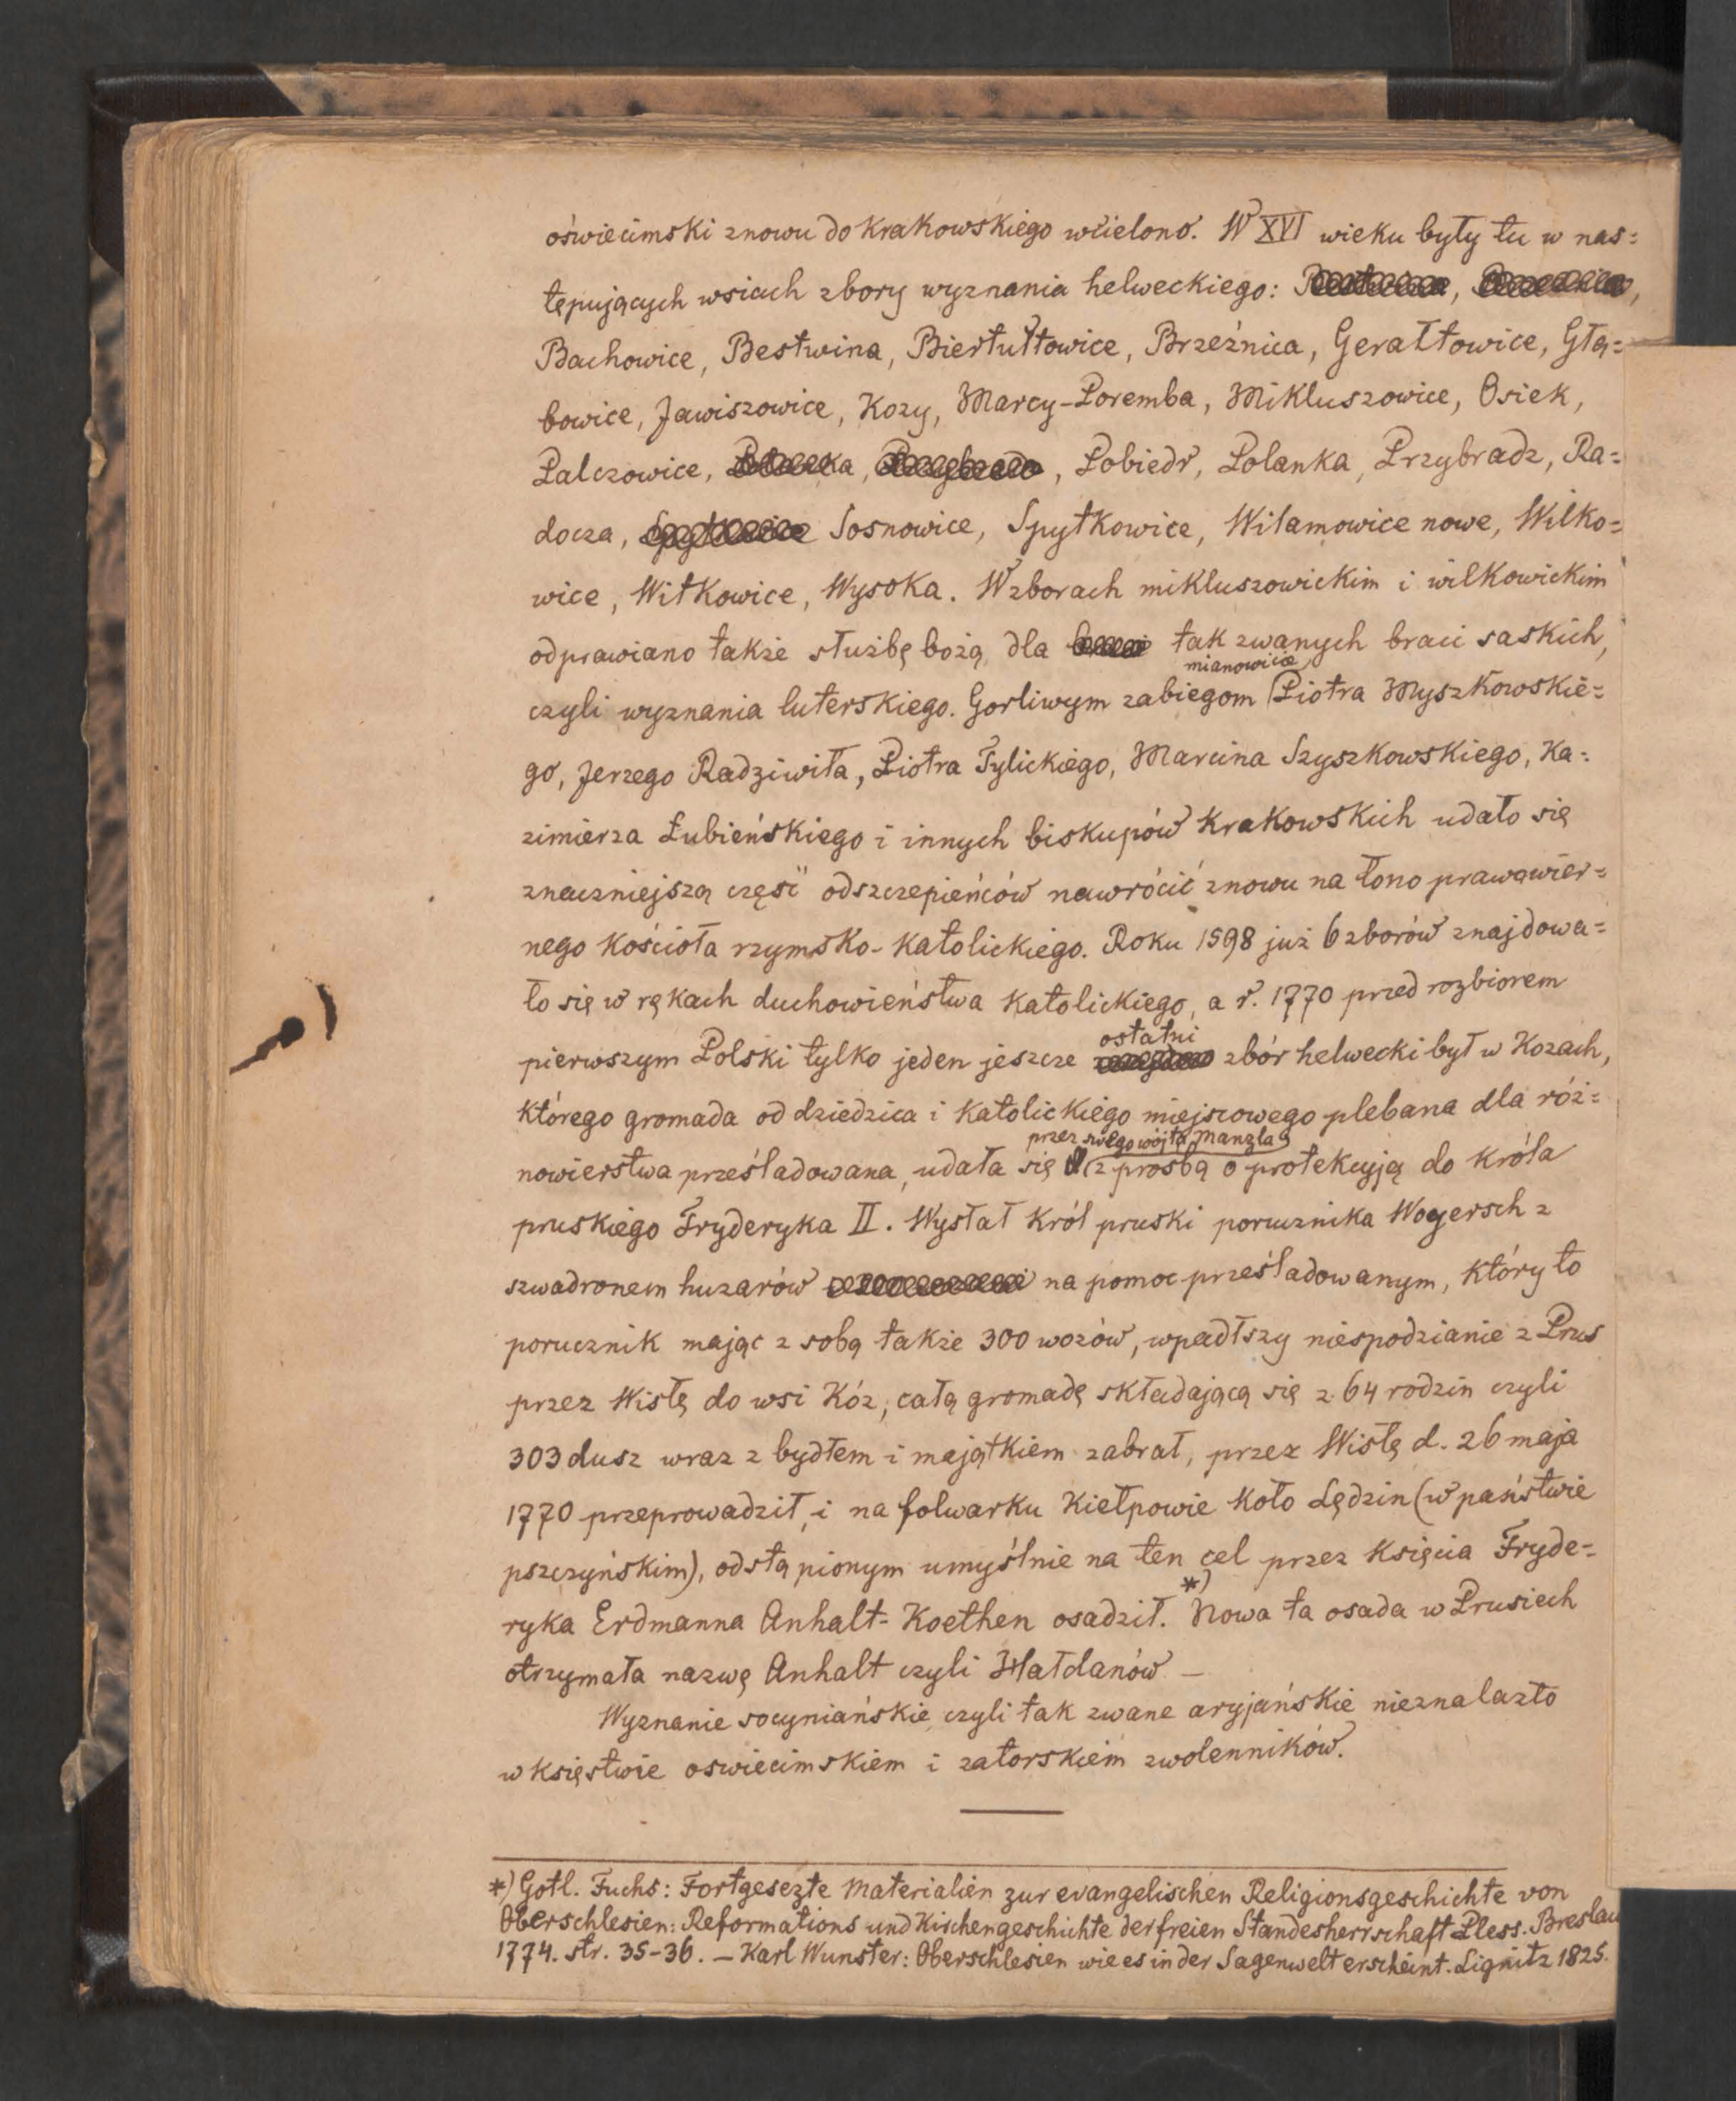 oświecimski znowu do krakowskiego wcielono. W XVI wieku były tu w nas=
tępujących wsiach zbory wyznania helweckiego:
Bachowice, Bestwina, Biertułtowice, Brzeźnica, Gerałtowice, Głę=
bowice, Jawiszowice, Kozy, Marcy-Poremba, Mikluszowice, Osiek,
Palczowice, Pobiedr, Polanka, Przybradz, Ra=
docza, Sosnowice, Spytkowice, Wilamowice nowe, Wilko=
wice, Witkowice, Wysoka. W zborach mikluszowickim i wilkowickim
odprawiano także służbę bożą dla tak zwanych braci saskich,
mianowicie
czyli wyznania luterskiego. Gorliwym zabiegom Piotra Myszkowskie=
go, Jerzego Radziwiła, Piotra Tylickiego, Marcina Szyszkowskiego, Ka=
zimierza Łubieńskiego i innych biskupów krakowskich udało się
znaczniejszą część odszczepieńców nawrócić znowu na łono prawowier=
nego kościoła rzymsko-katolickiego. Roku 1598 już 6 zborów znajdowa=
ło się w rękach duchowieństwa katolickiego, a r. 1770 przed rozbiorem
ostatni
pierwszym Polski tylko jeden jeszcze zbór helwecki był w Kozach,
którego gromada od dziedzica i katolickiego miejscowego plebana dla róż=
przez swego wójta Manzla
nowierstwa prześladowana, udała się z prośbą o protekcyją do króla
pruskiego Fryderyka II. Wysłał król pruski porucznika Woyersch z
szwadronem huzarów na pomoc prześladowanym, który to
porucznik mając z sobą także 300 wozów, wpadłszy niespodzianie z Prus
przez Wisłę do wsi Kóz, całą gromadę składającą się z 64 rodzin czyli
303 dusz wraz z bydłem i majątkiem zabrał, przez Wisłę d. 26 maja
1770 przeprowadził, i na folwarku Kiełpowie koło Lędzin (w państwie
pszczyńskim), odstąpionym umyślnie na ten cel przez księcia Fryde=
ryka Erdmanna Anhalt-Koethen osadził. *) Nowa ta osada w Prusiech
otrzymała nazwę Anhalt czyli Hałdanów —
Wyznanie socyniańskie czyli tak zwane aryjańskie nieznalazło
w księstwie oswiecimskiem i zatorskiem zwolenników.
*) Gotl. Fuchs: Fortgesezte Materialien zur evangelischen Religionsgeschichte von
Oberschlesien: Reformations und Kirchengeschichte der freien Standesherrschaft Pless. Breslau
1774. str. 35-36. — Karl Wunster: Oberschlesien wie es in der Sagenwelt erscheint. Lignitz 1825.